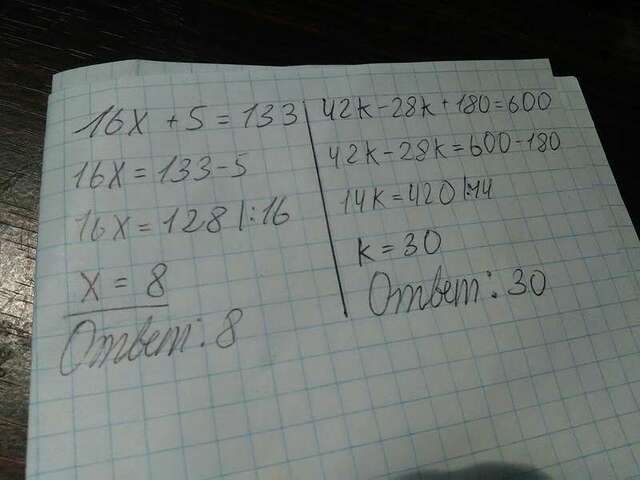 16x + 5 = 133
16x = 133 - 5
16x = 128 |:16
x = 8
Ответ: 8
42k - 28k + 180 = 600
42k - 28k = 600 - 180
14k = 420 |:14
k = 30
Ответ: 30